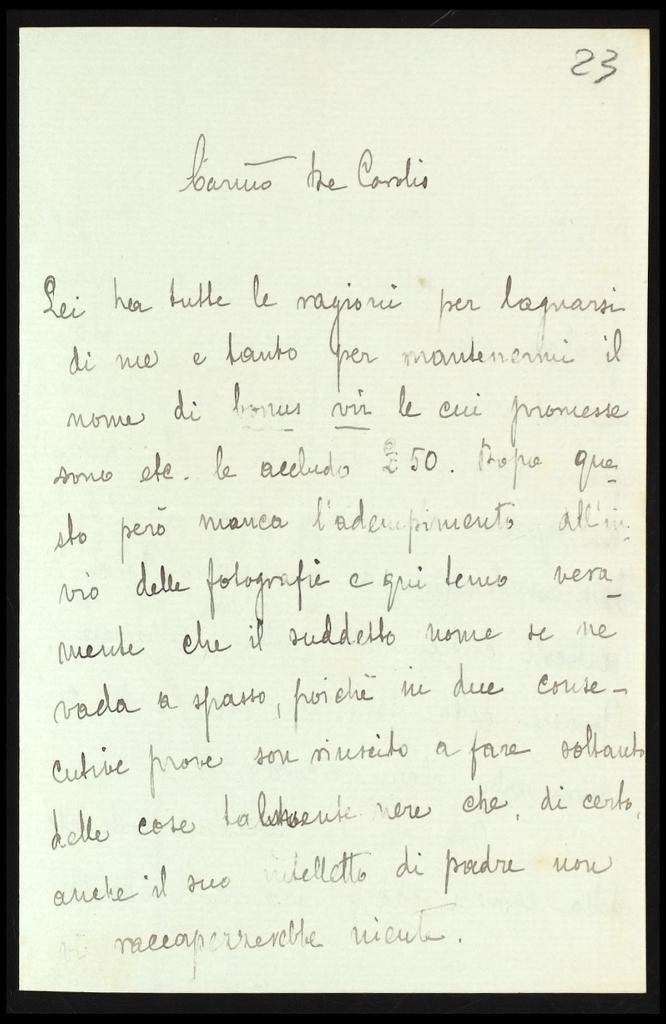 23
Carmo De Carolis
Lei ha tutte le ragioni per lagnarsi
di me e tanto per mantenermi il
nome di bonus vir le cui promesse
sono etc. le accludo £ 50. Dopo que-
sto però manca l'adempimento all'in-
vio delle fotografie e qui temo vera-
mente che il suddetto nome se ne
vada a spasso, poichè in due conse-
cutive prove son riuscito a fare soltanto
delle cose talmente nere che, di certo,
anche il suo intelletto di padre non
vi raccapezzerebbe niente.